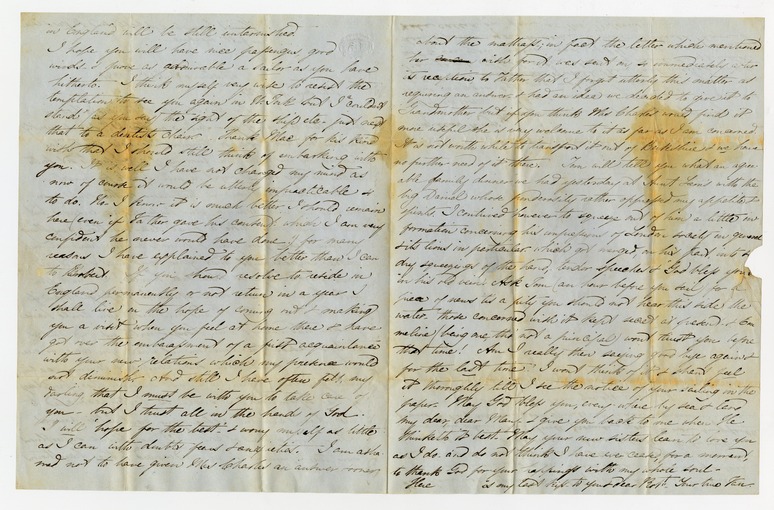 in England will be still untarnished
I hope you will have nice passengers, good
winds & prove as admirable a sailor as you have
hitherto. I think myself very wise to resist the
temptation to see you again in N. York but I couldn't
stand as you say the sight of the ship etc. just now
that to a death's door. Thank Mac for his kind
wish that I should still think of embarking with
you. I have not changed my mind as
now of course it would be utterly impracticable
to do. No I know it is much better I should remain
here, even if Father gave his consent which I am very
confident he never would have done, & for many
reasons I have explained to you better than I can
to Robert. If you should resolve to reside in
England permanently or not return in a year I
shall live in the hope of coming out & making
you a visit when you feel at home there & have
got over the embarrassment of a first acquaintance
with your new relations which my presence would
not diminish. And still I have often felt my
darling that I must be with you to take care of
you - but I trust all in the hands of God.
I will hope for the best & worry myself as little
as I can with doubts fears & anxieties. I am asha-
med not to have given Mrs Charles an answer sooner
about the mattrass; in fact the letter which mentioned
her wish for it was sent on so immediately after
its reception to Father that I forgot utterly this matter as
requiring an answer. I had an idea we designed to give it to
Grandmother but if you think Mrs Charles would find it
more useful she is very welcome to it as far as I am concerned
It is not worth while to transport it out of Berkshire as we have
no further need of it there. Tom will tell you what an agree-
able family dinner we had yesterday at Aunt with the
big Daniel whose ponderosity rather oppressed my appetite &
spirits. I contrived however to squeeze out of him a little in-
formation concerning his impressions of London society in general
& its lions in particular which got merged on his part into
dry squeezings of the hand, tender speeches & God bless yous
in his old vein. Ask Tom an hour before you sail for a
piece of news tis a pity you should not hear this side the
water. those concerned wish it kept secret at present &
me (being me, tho' not a principal) won't trust you before
that time. Am I really then saying good bye again &
for the last time. I won't think of it & shan't feel
it thoroughly till I see the notice of your sailing in the
paper. May God bless you, every where by sea & land
my dear dear Mary & give you back to me when He
thinketh it best. May your new sisters learn to love you
as I do, and do not think I have ceased for a moment
to thank God for your with my whole soul -
Here is my last kiss to your dear Robt. Your true Fan-